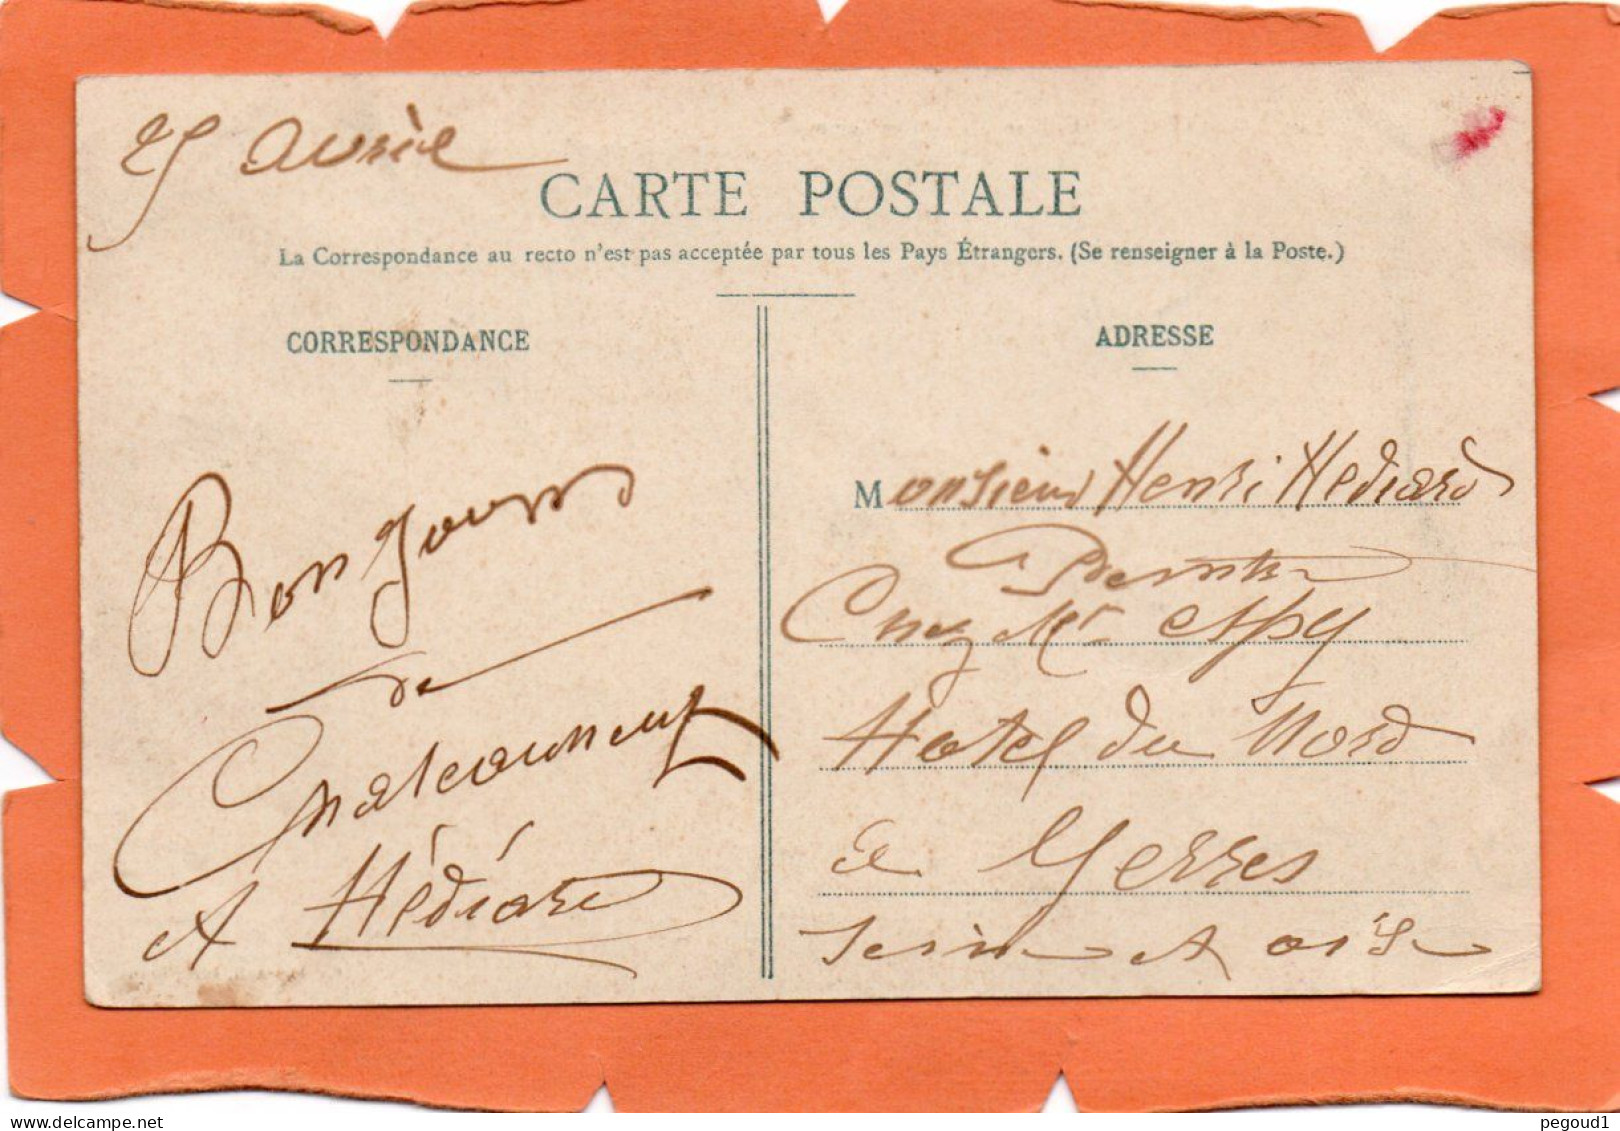 25 avril
CARTE POSTALE
La Correspondance au recto n'est pas acceptée par tous les Pays Étrangers. (Se renseigner à la Poste.)
CORRESPONDANCE
Bonjours
de
Chateauneuf
A Hédiard
ADRESSE
Monsieur Henri Hediard
Peintre
Chez Mr
Hotel du Nord
a Yerres
Seine et Oise
delcampe.net
pegoud1